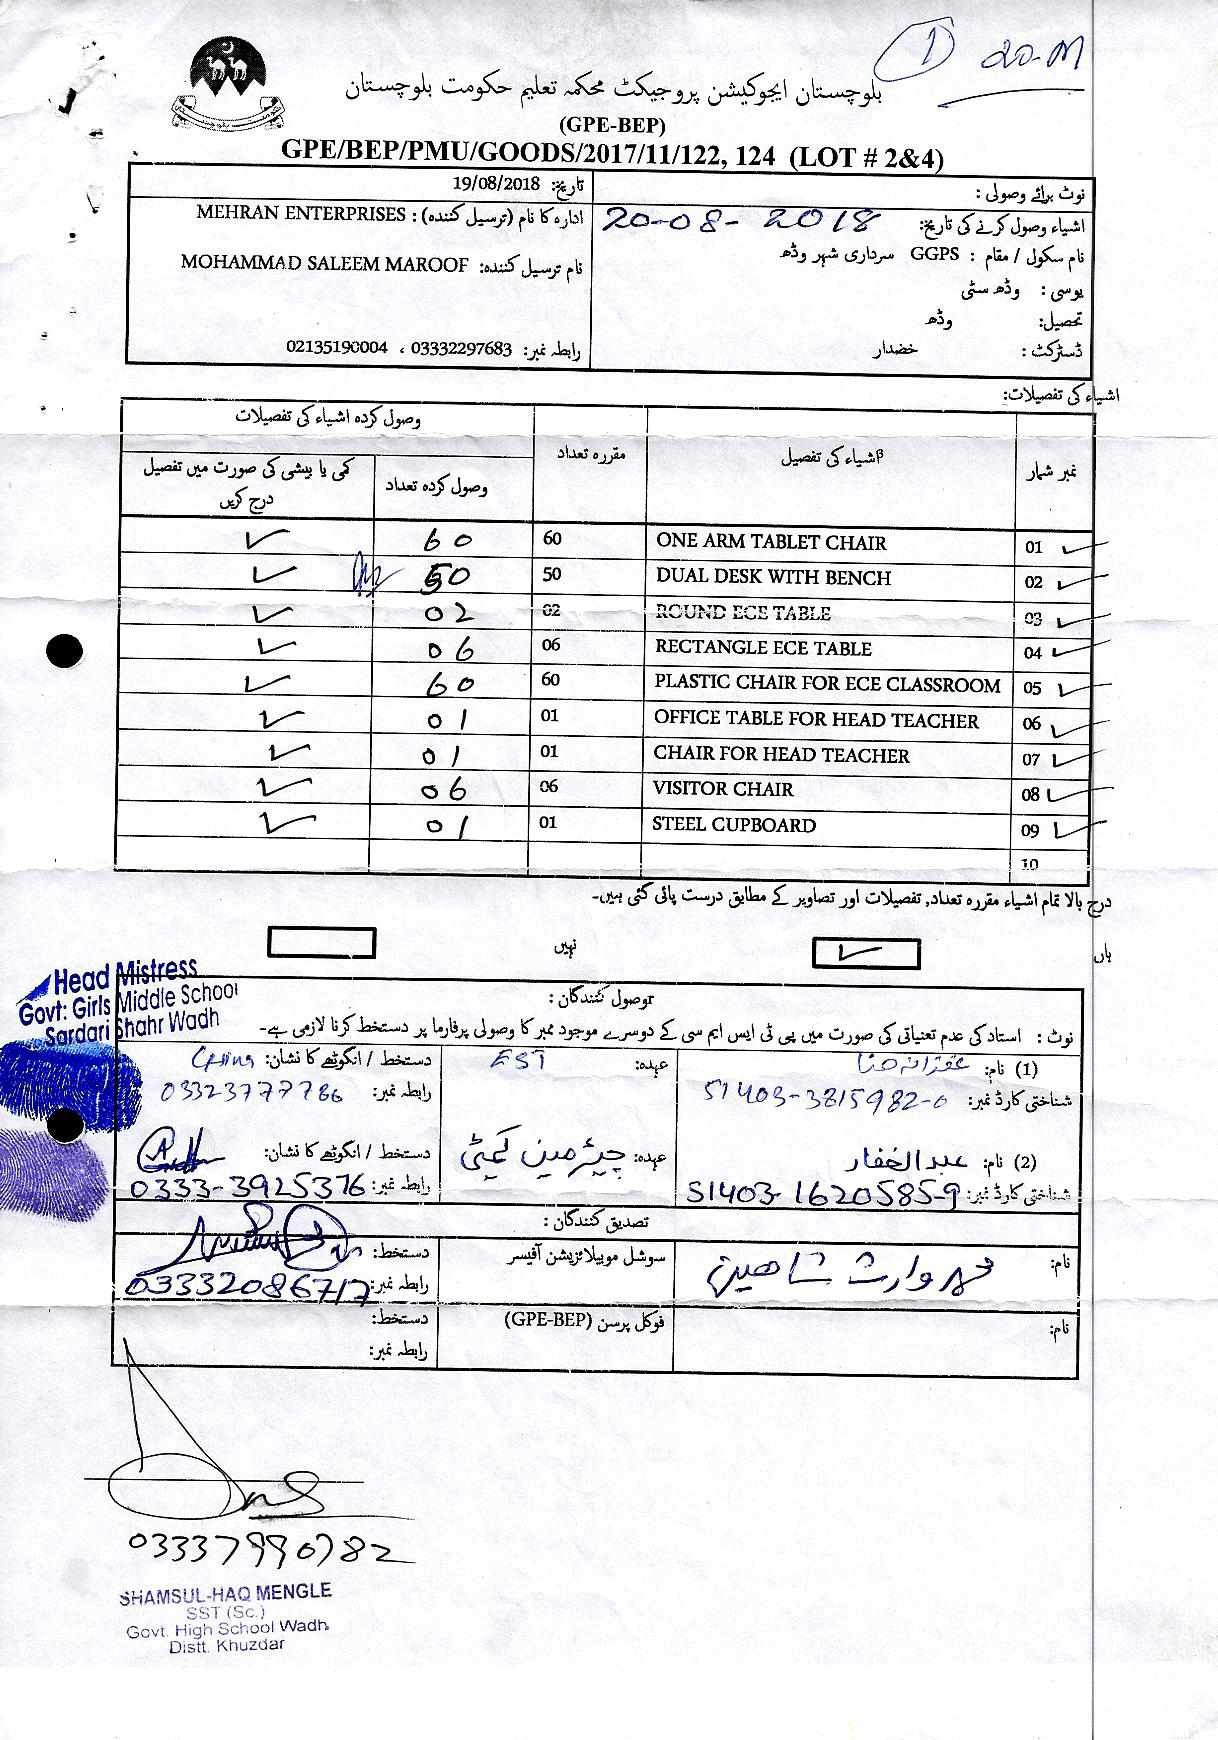 1 20-M
بلوچستان ایجوکیشن پروجیکٹ محکمہ تعلیم حکومت بلوچستان
(GPE-BEP)
GPE/BEP/PMU/GOODS/2017/11/122, 124 (LOT # 2&4)
نوٹ برائے وصولی :
اشیاء وصول کرنے کی تاریخ: 20-08-2018
نام سکول / مقام : GGPS سرداری شہر وڈھ
یوسی : وڈھ سٹی
تحصیل: وڈھ
ڈسٹرکٹ : خضدار
تاریخ: 19/08/2018
ادارہ کا نام (ترسیل کنندہ) : MEHRAN ENTERPRISES
نام ترسیل کنندہ: MOHAMMAD SALEEM MAROOF
رابطہ نمبر: 03332297683 ، 02135190004
اشیاء کی تفصیلات:
نمبر شمار اشیاء کی تفصیل مقررہ تعداد وصول کردہ اشیاء کی تفصیلات
وصول کردہ تعداد کمی یا بیشی کی صورت میں تفصیل درج کریں
01 ✓ ONE ARM TABLET CHAIR 60 60 ✓
02 ✓ DUAL DESK WITH BENCH 50 50 ✓
03 ✓ ROUND ECE TABLE 02 02 ✓
04 ✓ RECTANGLE ECE TABLE 06 06 ✓
05 ✓ PLASTIC CHAIR FOR ECE CLASSROOM 60 60 ✓
06 ✓ OFFICE TABLE FOR HEAD TEACHER 01 01 ✓
07 ✓ CHAIR FOR HEAD TEACHER 01 01 ✓
08 ✓ VISITOR CHAIR 06 06 ✓
09 ✓ STEEL CUPBOARD 01 01 ✓
10
درج بالا تمام اشیاء مقررہ تعداد, تفصیلات اور تصاویر کے مطابق درست پائی گئی ہیں-
ہاں ✓ نہیں
Head Mistress
Govt: Girls Middle School
Sardari Shahr Wadh
وصول کنندگان :
نوٹ : استاد کی عدم تعیناتی کی صورت میں پی ٹی ایس ایم سی کے دوسرے موجود ممبر کا وصولی پرفارما پر دستخط کرنا لازمی ہے-
(1) نام: عہدہ: EST دستخط / انگوٹھے کا نشان:
شناختی کارڈ نمبر: 51403-3815982-0 رابطہ نمبر: 03323777786
(2) نام: عبدالغفار عہدہ: چیئرمین کمیٹی دستخط / انگوٹھے کا نشان:
شناختی کارڈ نمبر: 51403-1620585-9 رابطہ نمبر: 0333-3925376
تصدیق کنندگان :
نام: محمد وارث شاھین سوشل موبیلائزیشن آفیسر دستخط:
رابطہ نمبر: 03332086717
نام: فوکل پرسن (GPE-BEP) دستخط:
رابطہ نمبر:
03337990782
SHAMSUL-HAQ MENGLE
SST (Sc.)
Govt. High School Wadh
Distt. Khuzdar